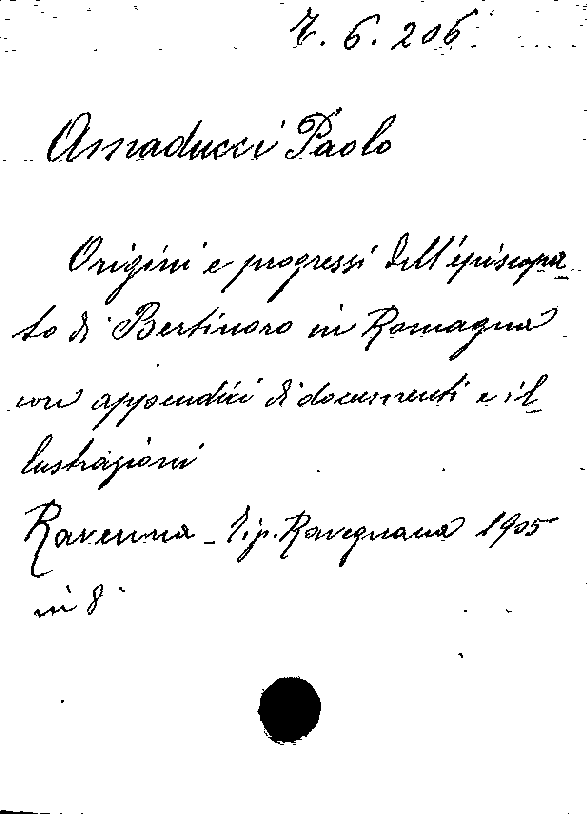 7.6.206
Amaducci Paolo
Origini e progressi dell'episcopa-
to di Bertinoro in Romagna
con appendici di documenti e il-
lustrazioni
Ravenna - Tip. Ravegnana 1905
in 8°